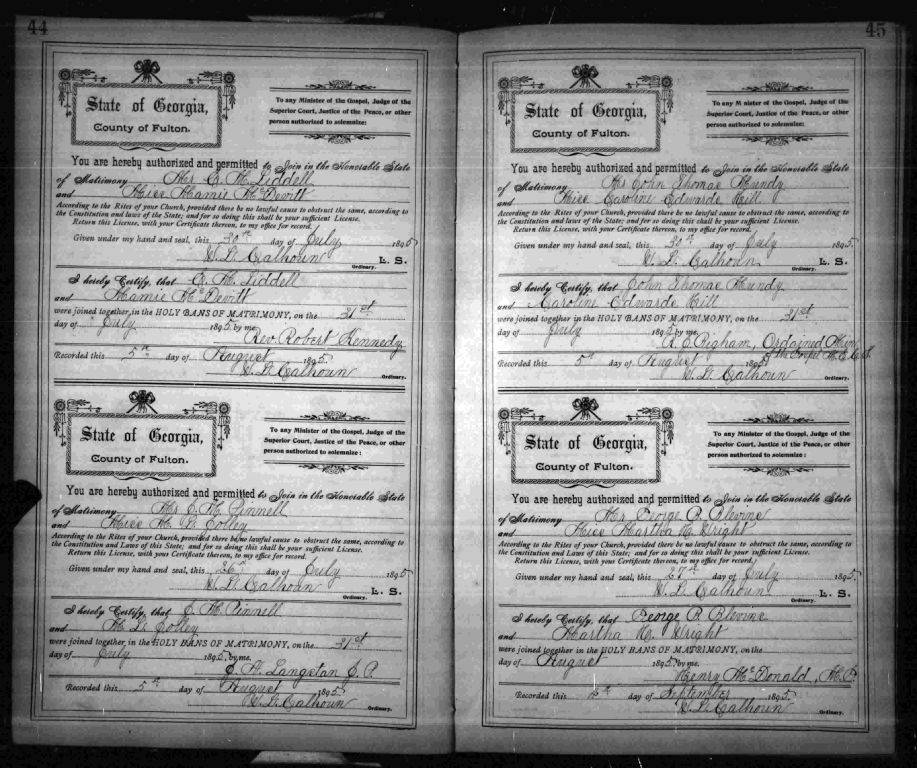 44
State of Georgia,
County of Fulton.
To any Minister of the Gospel, Judge of the
Superior Court, Justice of the Peace, or other
person authorized to solemnize:
You are hereby authorized and permitted to Join in the Honorable State
of Matrimony Mr C. H. Liddell
and Miss Mamie McDevitt
According to the Rites of your Church, provided there be no lawful cause to obstruct the same, according to
the Constitution and laws of the State; and for so doing this shall be your sufficient License.
Return this License, with your Certificate thereon, to my office for record.
Given under my hand and seal, this 30th day of July 1895
W. L. Calhoun L. S.
Ordinary.
I hereby Certify, that C. H. Liddell
and Mamie McDevitt
were joined together, in the HOLY BANS OF MATRIMONY, on the 31st
day of July 1895 by me,
Rev. Robert Kennedy
Recorded this 5th day of August 1895.
W. L. Calhoun
Ordinary.
State of Georgia,
County of Fulton.
To any Minister of the Gospel, Judge of the
Superior Court, Justice of the Peace, or other
person authorized to solemnize:
You are hereby authorized and permitted to Join in the Honorable State
of Matrimony Mr J. H. Pinnell
and Miss M. L. Colley
According to the Rites of your Church, provided there be no lawful cause to obstruct the same, according to
the Constitution and Laws of this State; and for so doing this shall be your sufficient License.
Return this License, with your Certificate thereon, to my office for record.
Given under my hand and seal, this 26th day of July 1895
W. L. Calhoun L. S.
Ordinary.
I hereby Certify, that J. H. Pinnell
and M. L. Colley
were joined together, in the HOLY BANS OF MATRIMONY, on the 31st
day of July 1895 by me,
J. H. Langston J. P.
Recorded this 5th day of August 1895.
W. L. Calhoun
Ordinary.
45
State of Georgia,
County of Fulton.
To any Minister of the Gospel, Judge of the
Superior Court, Justice of the Peace, or other
person authorized to solemnize:
You are hereby authorized and permitted to Join in the Honorable State
of Matrimony Mr John Thomas Mundy
and Miss Caroline Edwards Hill
According to the Rites of your Church, provided there be no lawful cause to obstruct the same, according to
the Constitution and laws of the State; and for so doing this shall be your sufficient License.
Return this License, with your Certificate thereon, to my office for record.
Given under my hand and seal, this 30th day of July 1895.
W. L. Calhoun L. S.
Ordinary.
I hereby Certify, that John Thomas Mundy
and Caroline Edwards Hill
were joined together, in the HOLY BANS OF MATRIMONY, on the 31st
day of July 1895 by me,
Ordained Min
of the Gospel M. E. C. S.
Recorded this 5th day of August 1895
W. L. Calhoun
Ordinary.
State of Georgia,
County of Fulton.
To any Minister of the Gospel, Judge of the
Superior Court, Justice of the Peace, or other
person authorized to solemnize:
You are hereby authorized and permitted to Join in the Honorable State
of Matrimony Mr George P. Blevins
and Miss Martha C. Wright
According to the Rites of your Church, provided there be no lawful cause to obstruct the same, according to
the Constitution and Laws of this State; and for so doing this shall be your sufficient License.
Return this License, with your Certificate thereon, to my office for record.
Given under my hand and seal, this 27th day of July 1895.
W. L. Calhoun L. S.
Ordinary.
I hereby Certify, that George P. Blevins
and Martha C. Wright
were joined together, in the HOLY BANS OF MATRIMONY, on the
day of August 1895 by me,
Henry McDonald,
Recorded this day of September 1895
W. L. Calhoun
Ordinary.